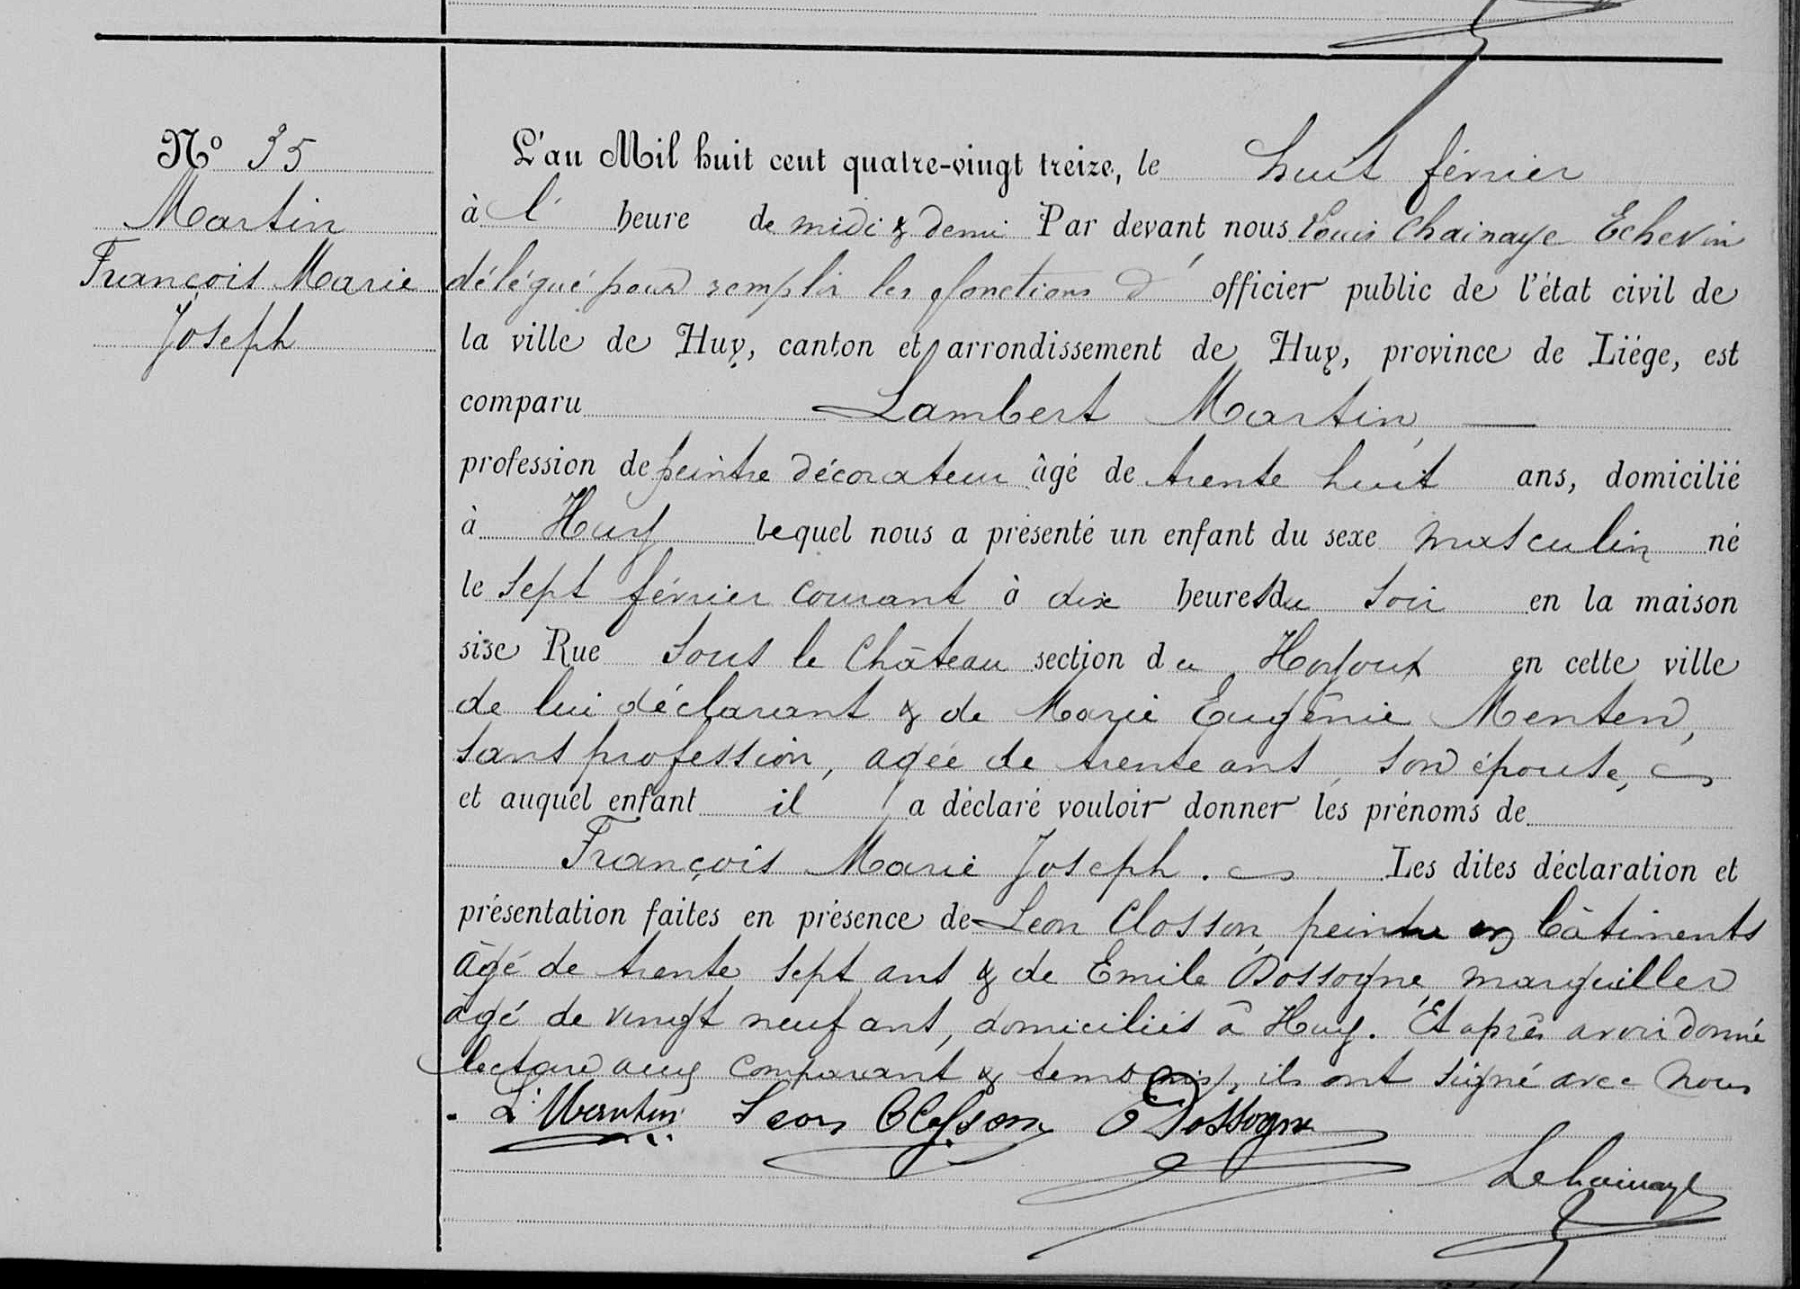 Nº 35
Martin
François Marie
Joseph
L'an Mil huit cent quatre-vingt treize, le huit février
à l' heure de midi & demi Par devant nous Louis Chainaye Echevin
délégué pour remplir les fonctions d' officier public de l'état civil de
la ville de Huy, canton et arrondissement de Huy, province de Liége, est
comparu Lambert Martin,
profession de peintre décorateur âgé de trente huit ans, domicilié
à Huy lequel nous a présenté un enfant du sexe masculin né
le sept février courant à dix heures du soir en la maison
sise Rue Sous le Château section du Hoyoux en cette ville
de lui déclarant & de Marie Eugénie Menten,
sans profession, agée de trente ans, son épouse,
et auquel enfant il a déclaré vouloir donner les prénoms de
François Marie Joseph. Les dites déclaration et
présentation faites en présence de Leon Closson, peintre en bâtiments
âgé de trente sept ans & de Emile Dossogne, marguiller
âgé de vingt neuf ans, domiciliés à Huy. Et après avoir donné
lecture aux comparant & temoins, ils ont signé avec nous
L. Martin Leon Closson E Dossogne
LChainaye